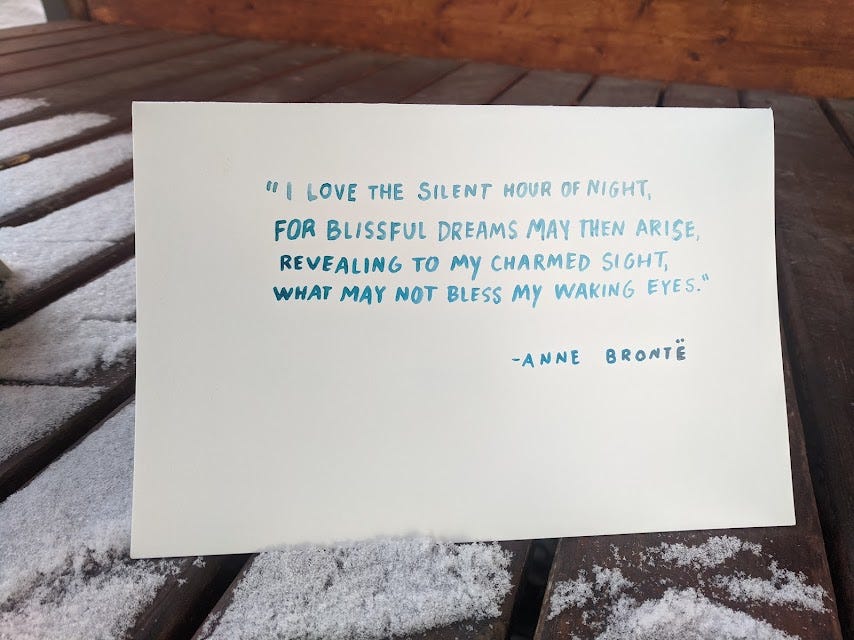 "I LOVE THE SILENT HOUR OF NIGHT,
FOR BLISSFUL DREAMS MAY THEN ARISE,
REVEALING TO MY CHARMED SIGHT,
WHAT MAY NOT BLESS MY WAKING EYES."
-ANNE BRONTË